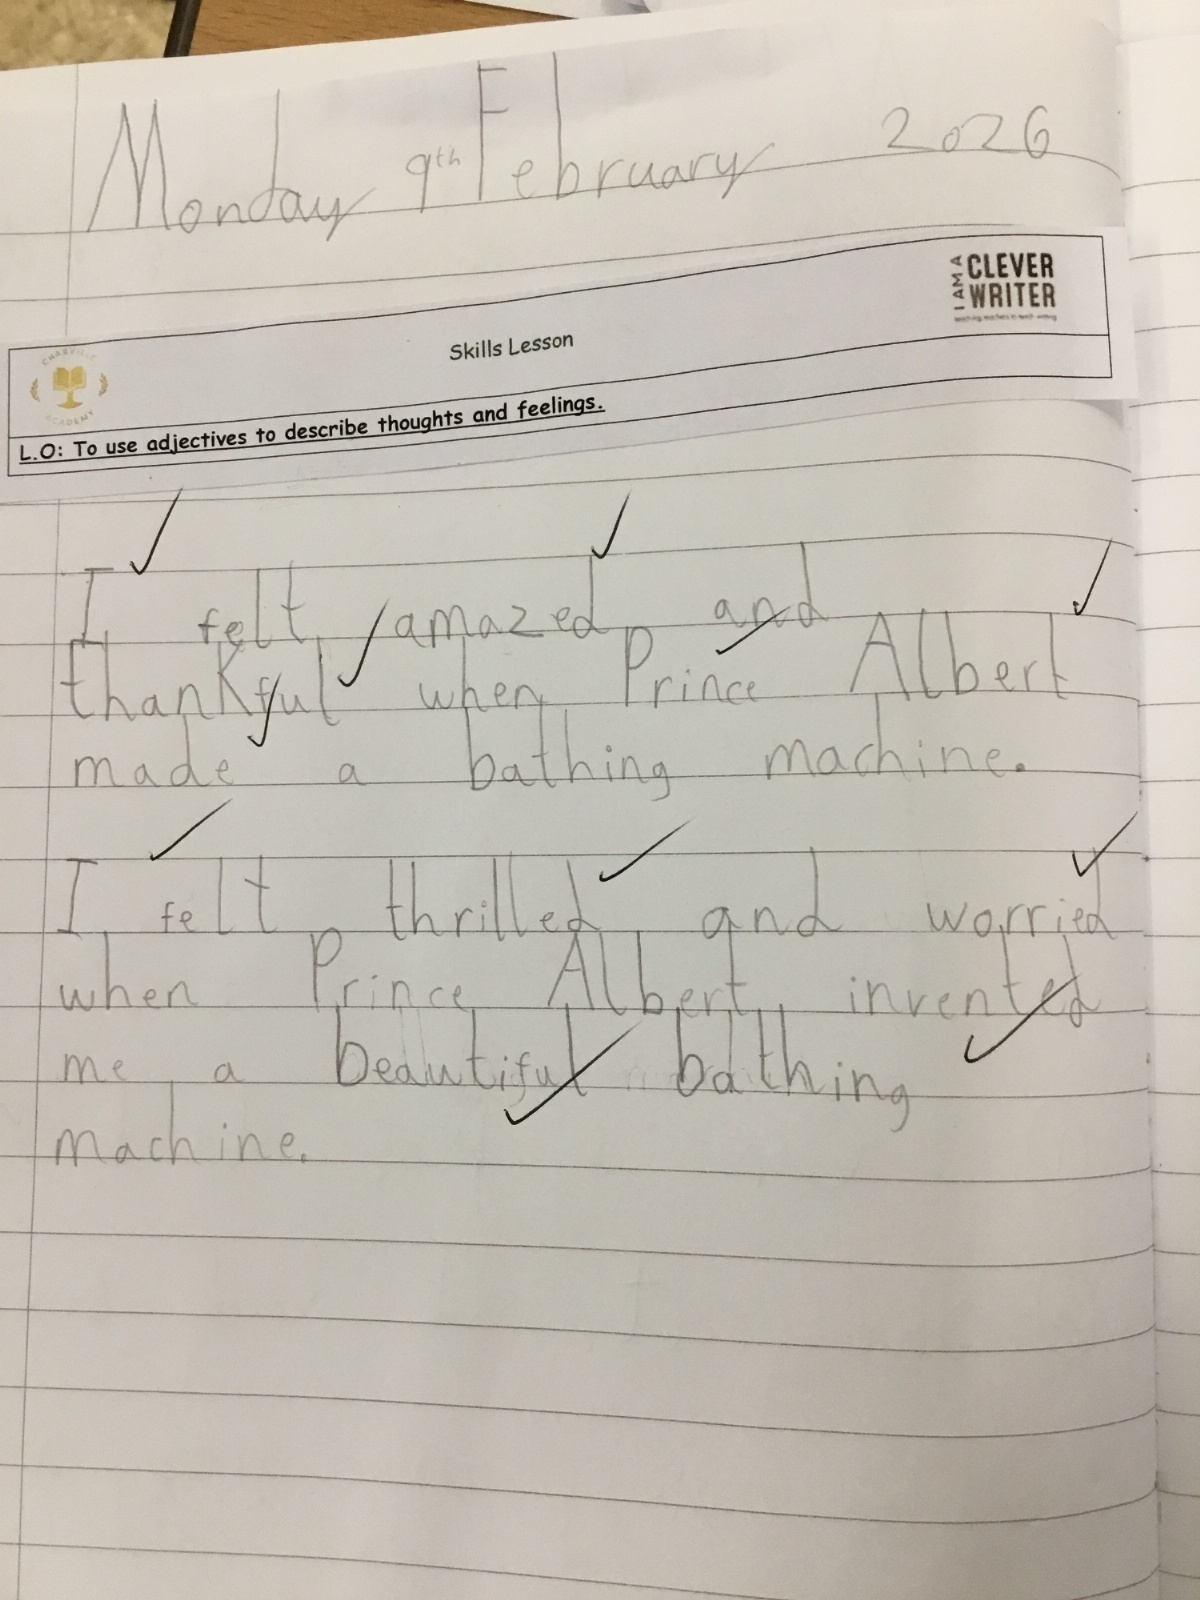 Monday 9th February 2026
I AM A CLEVER WRITER
CHARVILLE ACADEMY
Skills Lesson
L.O: To use adjectives to describe thoughts and feelings.
I felt amazed and
thankful when Prince Albert
made a bathing machine.
I felt thrilled and worried
when Prince Albert invented
me a beautiful bathing
machine.